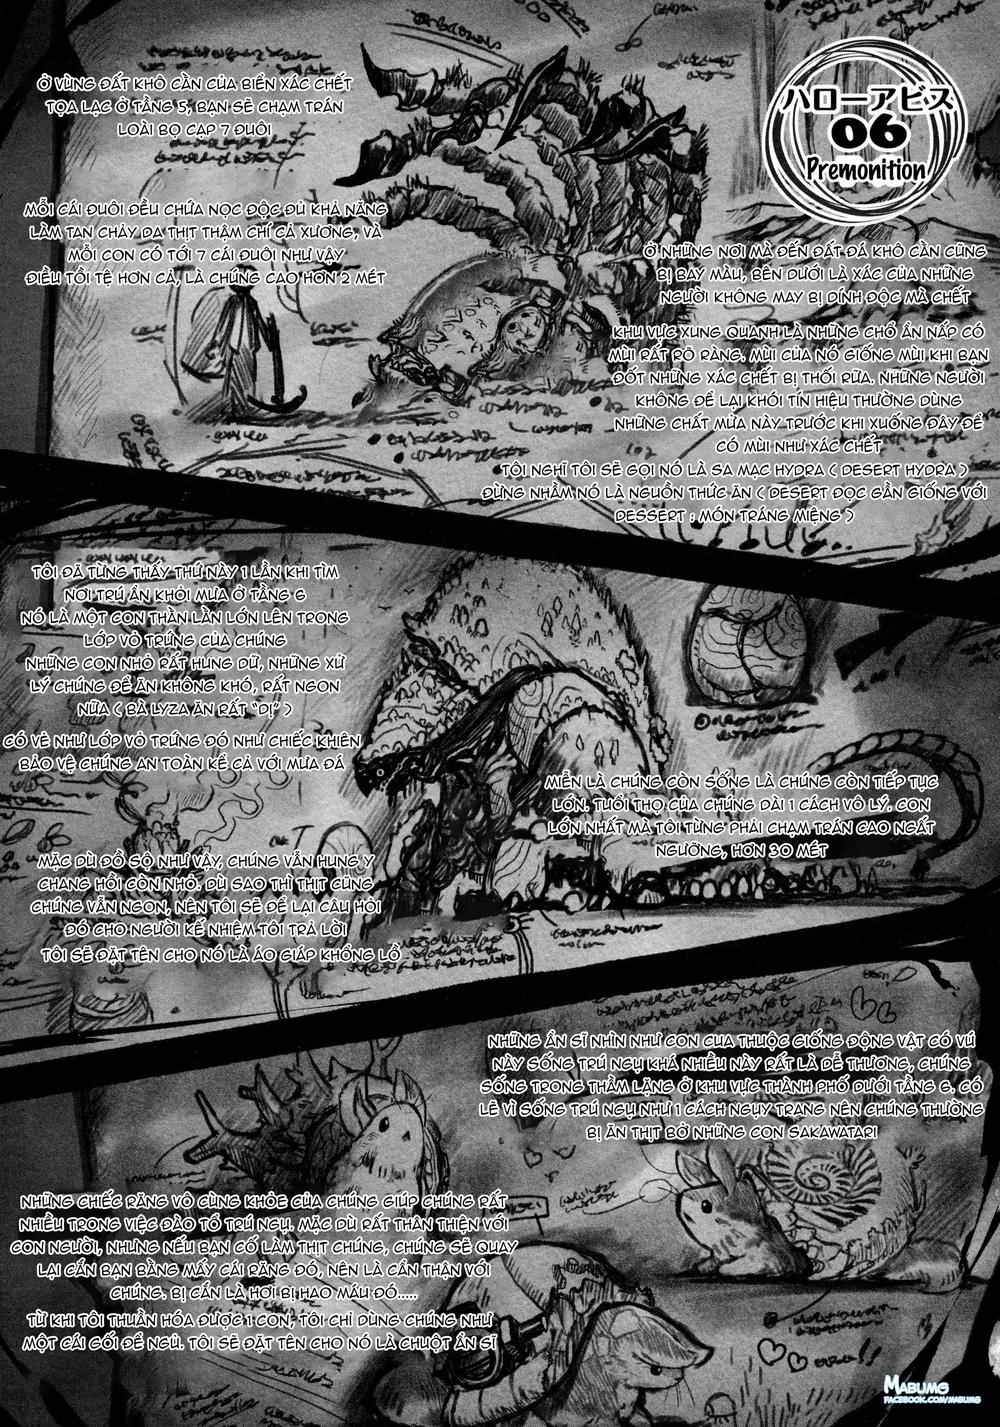 ハローアビス
06
Premonition
Ở VÙNG ĐẤT KHÔ CẰN CỦA BIỂN XÁC CHẾT
TỌA LẠC Ở TẦNG 5, BẠN SẼ CHẠM TRÁN
LOÀI BỌ CẠP 7 ĐUÔI
MỖI CÁI ĐUÔI ĐỀU CHỨA NỌC ĐỘC ĐỦ KHẢ NĂNG
LÀM TAN CHẢY DA THỊT THẬM CHÍ CẢ XƯƠNG, VÀ
MỖI CON CÓ TỚI 7 CÁI ĐUÔI NHƯ VẬY
ĐIỀU TỒI TỆ HƠN CẢ, LÀ CHÚNG CAO HƠN 2 MÉT
Ở NHỮNG NƠI MÀ ĐẾN ĐẤT ĐÁ KHÔ CẰN CŨNG
BỊ BAY MÀU, BÊN DƯỚI LÀ XÁC CỦA NHỮNG
NGƯỜI KHÔNG MAY BỊ DÍNH ĐỘC MÀ CHẾT
KHU VỰC XUNG QUANH LÀ NHỮNG CHỖ ẨN NẤP CÓ
MÙI RẤT RÕ RÀNG. MÙI CỦA NÓ GIỐNG MÙI KHI BẠN
ĐỐT NHỮNG XÁC CHẾT BỊ THỐI RỮA. NHỮNG NGƯỜI
KHÔNG ĐỂ LẠI KHÓI TÍN HIỆU THƯỜNG DÙNG
NHỮNG CHẤT MỬA NÀY TRƯỚC KHI XUỐNG ĐÂY ĐỂ
CÓ MÙI NHƯ XÁC CHẾT
TÔI NGHĨ TÔI SẼ GỌI NÓ LÀ SA MẠC HYDRA ( DESERT HYDRA )
ĐỪNG NHẦM NÓ LÀ NGUỒN THỨC ĂN ( DESERT ĐỌC GẦN GIỐNG VỚI
DESSERT : MÓN TRÁNG MIỆNG )
TÔI ĐÃ TỪNG THẤY THỨ NÀY 1 LẦN KHI TÌM
NƠI TRÚ ẨN KHỎI MƯA Ở TẦNG 6
NÓ LÀ MỘT CON THẰN LẰN LỚN LÊN TRONG
LỚP VỎ TRỨNG CỦA CHÚNG
NHỮNG CON NHỎ RẤT HUNG DỮ, NHƯNG XỬ
LÝ CHÚNG ĐỂ ĂN KHÔNG KHÓ, RẤT NGON
NỮA ( BÀ LYZA ĂN RẤT "DỊ" )
CÓ VẺ NHƯ LỚP VỎ TRỨNG ĐÓ NHƯ CHIẾC KHIÊN
BẢO VỆ CHÚNG AN TOÀN KỂ CẢ VỚI MƯA ĐÁ
MIỄN LÀ CHÚNG CÒN SỐNG LÀ CHÚNG CÒN TIẾP TỤC
LỚN. TUỔI THỌ CỦA CHÚNG DÀI 1 CÁCH VÔ LÝ. CON
LỚN NHẤT MÀ TÔI TỪNG PHẢI CHẠM TRÁN CAO NGẤT
NGƯỠNG, HƠN 30 MÉT
MẶC DÙ ĐỒ SỘ NHƯ VẬY, CHÚNG VẪN HUNG Y
CHANG HỒI CÒN NHỎ. DÙ SAO THÌ THỊT CŨNG
CHÚNG VẪN NGON, NÊN TÔI SẼ ĐỂ LẠI CÂU HỎI
ĐÓ CHO NGƯỜI KẾ NHIỆM TÔI TRẢ LỜI
TÔI SẼ ĐẶT TÊN CHO NÓ LÀ ÁO GIÁP KHỔNG LỒ
NHỮNG ẨN SĨ NHÌN NHƯ CON CUA THUỘC GIỐNG ĐỘNG VẬT CÓ VÚ
NÀY SỐNG TRÚ NGỤ KHÁ NHIỀU NÀY RẤT LÀ DỄ THƯƠNG, CHÚNG
SỐNG TRONG THẦM LẶNG Ở KHU VỰC THÀNH PHỐ DƯỚI TẦNG 6. CÓ
LẼ VÌ SỐNG TRÚ NGỤ NHƯ 1 CÁCH NGỤY TRANG NÊN CHÚNG THƯỜNG
BỊ ĂN THỊT BỞ NHỮNG CON SAKAWATARI
NHỮNG CHIẾC RĂNG VÔ CÙNG KHỎE CỦA CHÚNG GIÚP CHÚNG RẤT
NHIỀU TRONG VIỆC ĐÀO TỔ TRÚ NGỤ. MẶC DÙ RẤT THÂN THIỆN VỚI
CON NGƯỜI, NHƯNG NẾU BẠN CỐ LÀM THỊT CHÚNG, CHÚNG SẼ QUAY
LẠI CẮN BẠN BẰNG MẤY CÁI RĂNG ĐÓ, NÊN LÀ CẨN THẬN VỚI
CHÚNG. BỊ CẮN LÀ HƠI BỊ HAO MÁU ĐÓ.....
TỪ KHI TÔI THUẦN HÓA ĐƯỢC 1 CON, TÔI CHỈ DÙNG CHÚNG NHƯ
MỘT CÁI GỐI ĐỂ NGỦ. TÔI SẼ ĐẶT TÊN CHO NÓ LÀ CHUỘT ẨN SĨ
MABUMG
FACEBOOK.COM/MABUMG